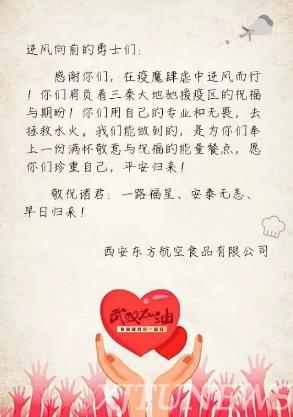 逆风向前的勇士们：
感谢你们，在疫魔肆虐中逆风而行
！你们肩负着三秦大地驰援疫区的祝福
与期盼！你们用自己的专业和无畏，去
拯救水火。我们能做到的，是为你们奉
上一份满怀敬意与祝福的能量餐点，愿
你们珍重自己，平安归来！
敬祝诸君：一路福星、安泰无恙、
早日归来！
西安东方航空食品有限公司
武汉加油